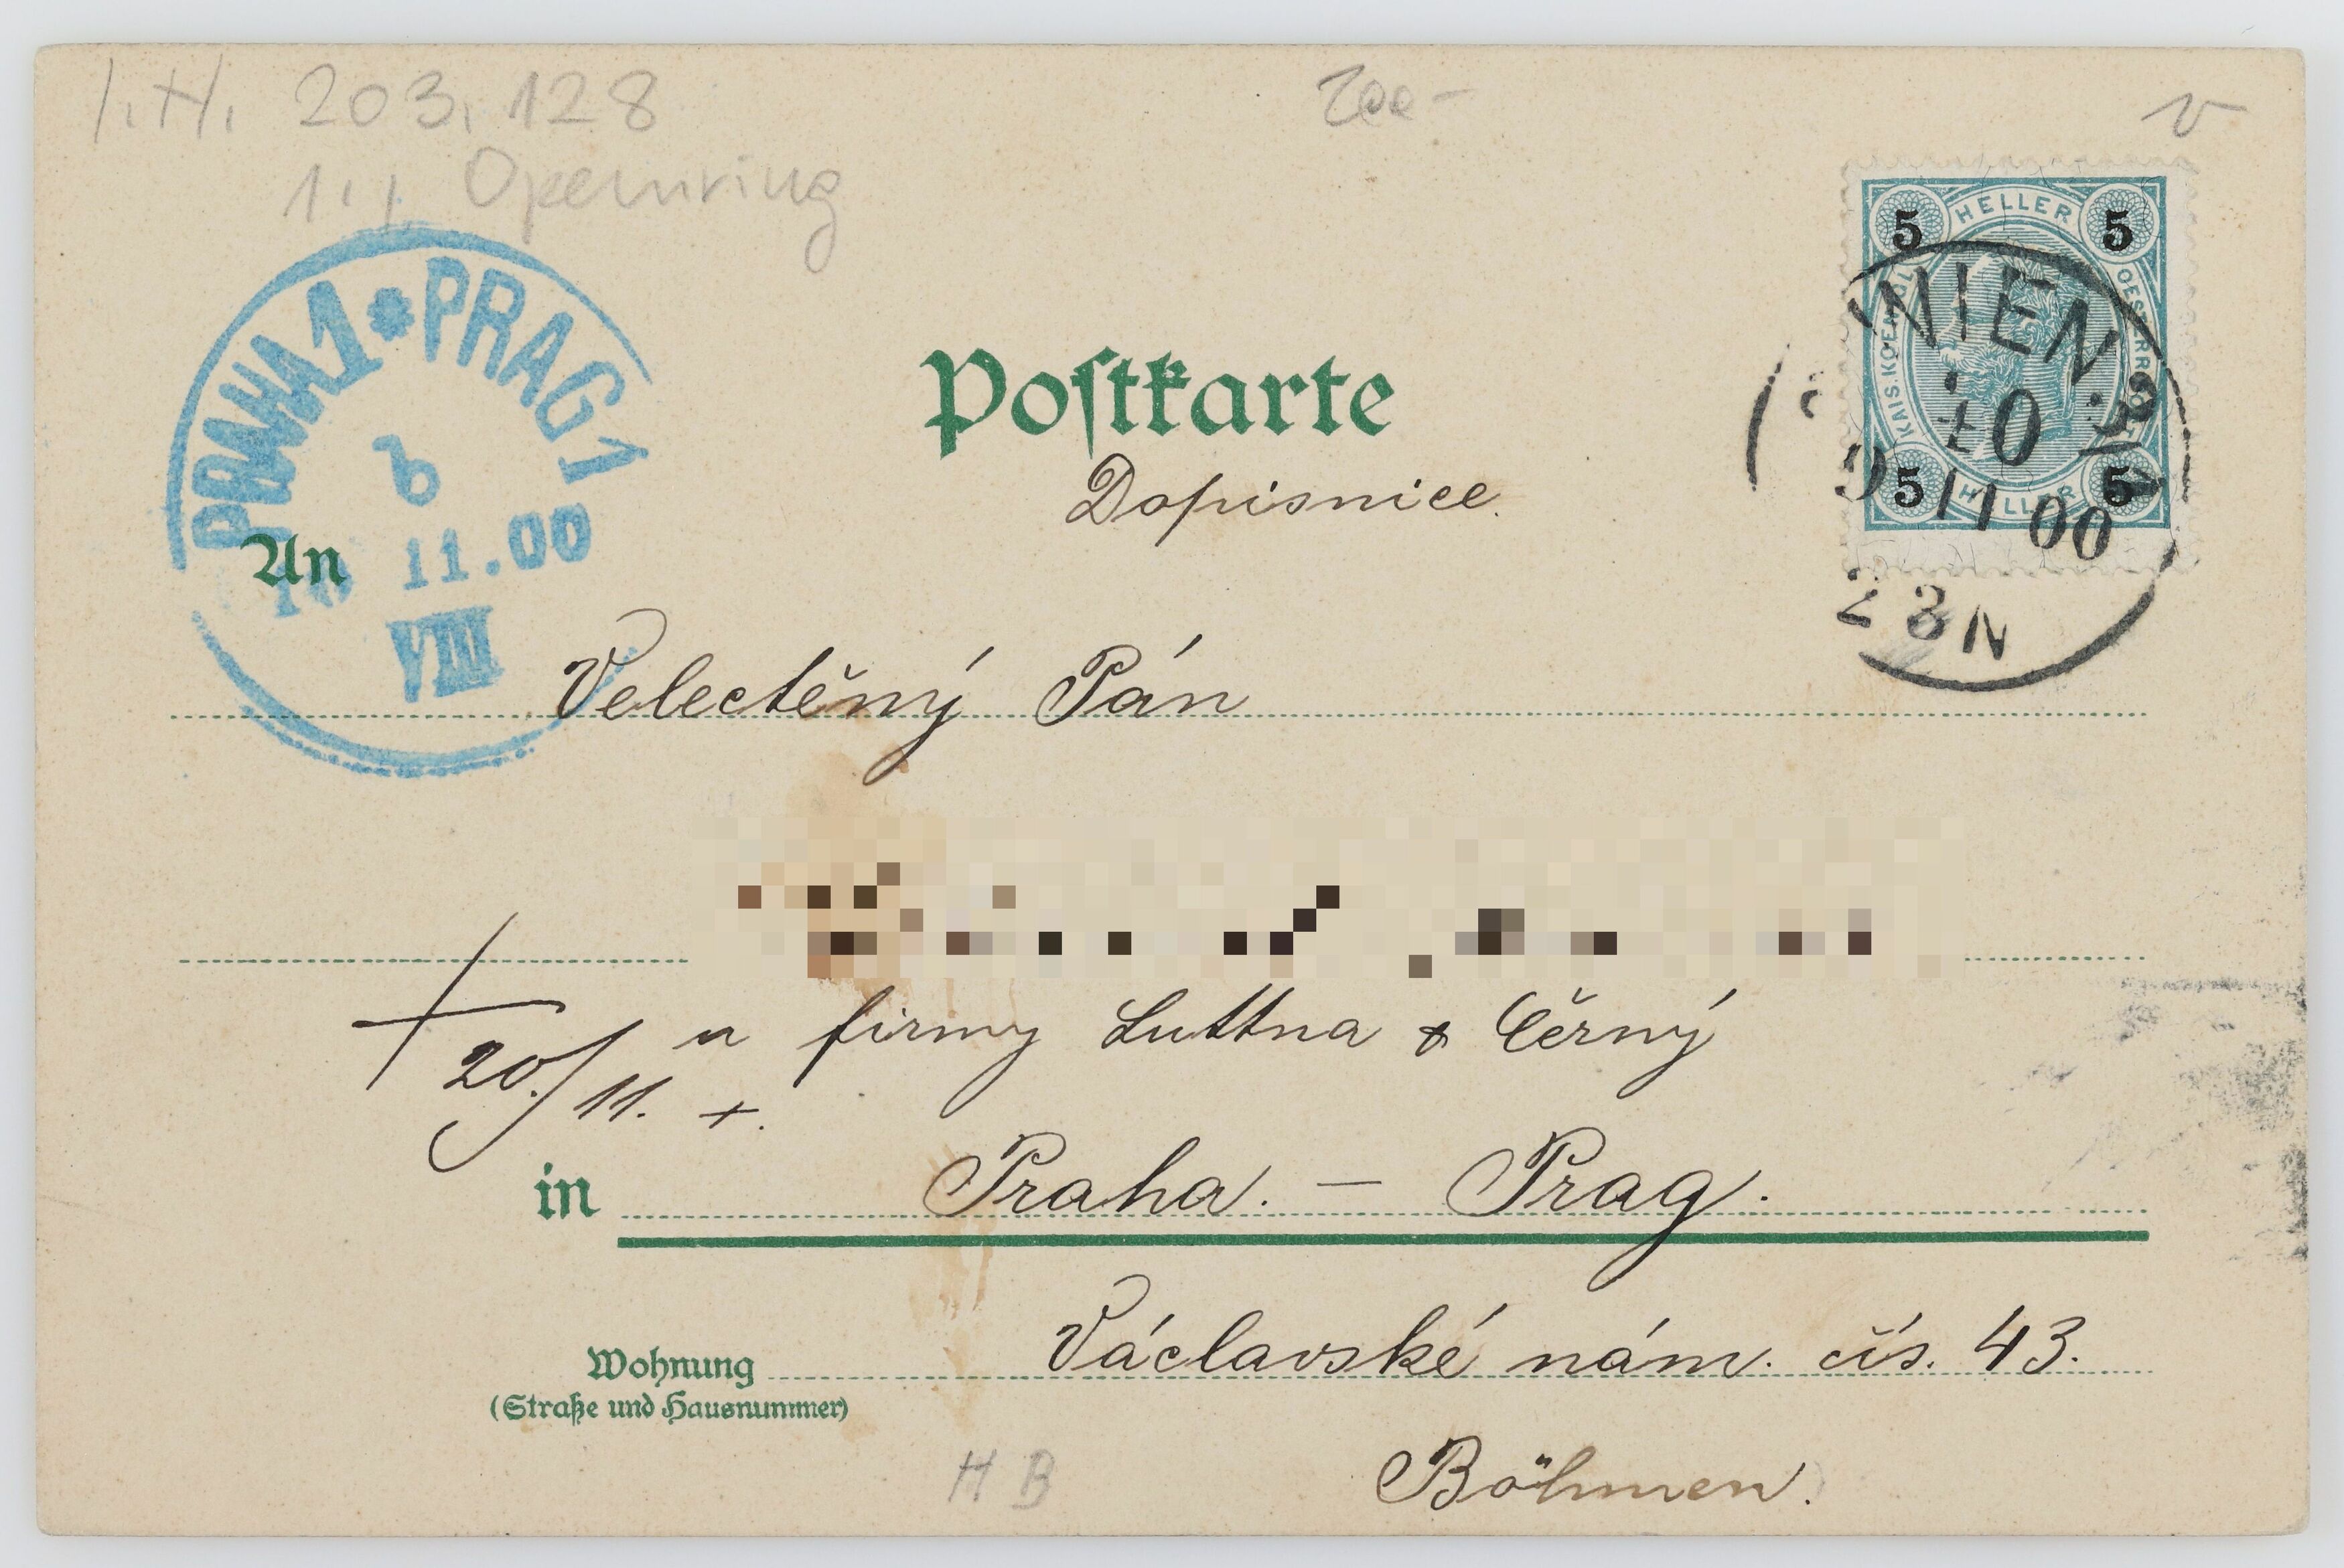 I.H. 203.128
1., Opernring
v
PRAHA 1 * PRAG 1
6
10 11.00
VIII
5 HELLER 5
WIEN
10
9 11 00
5 HELLER 5
Postkarte
Dopisnice.
An
Velectěný Pán
u firmy Luttna & Černý
20./11. +.
in Praha. — Prag.
Wohnung Václavské nám. čís. 43.
(Straße und Hausnummer)
H B
Böhmen.